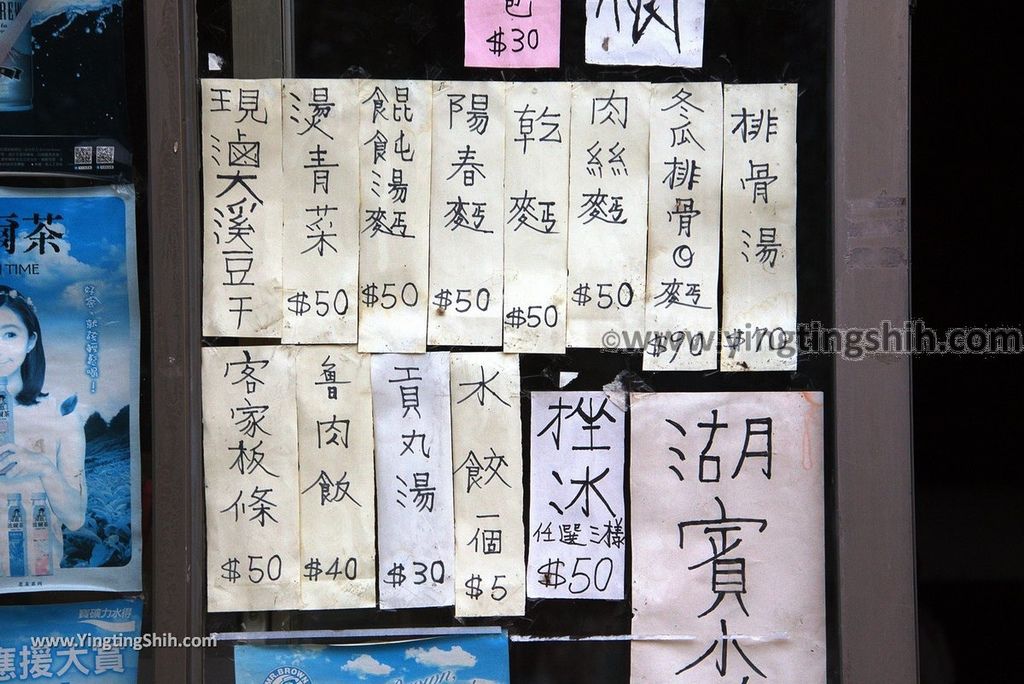 $30
現滷大溪豆干
燙青菜
$50
餛飩湯麵
$50
陽春麵
$50
乾麵
$50
肉絲麵
$50
冬瓜排骨口麵
$90
排骨湯
$70
客家板條
$50
魯肉飯
$40
貢丸湯
$30
水餃一個
$5
挫冰
任選三樣
$50
湖賓小
茶
TIME
寶礦力水得
應援大賞
MR.BROWN
©www.yingtingshih.com
www.YingtingShih.com